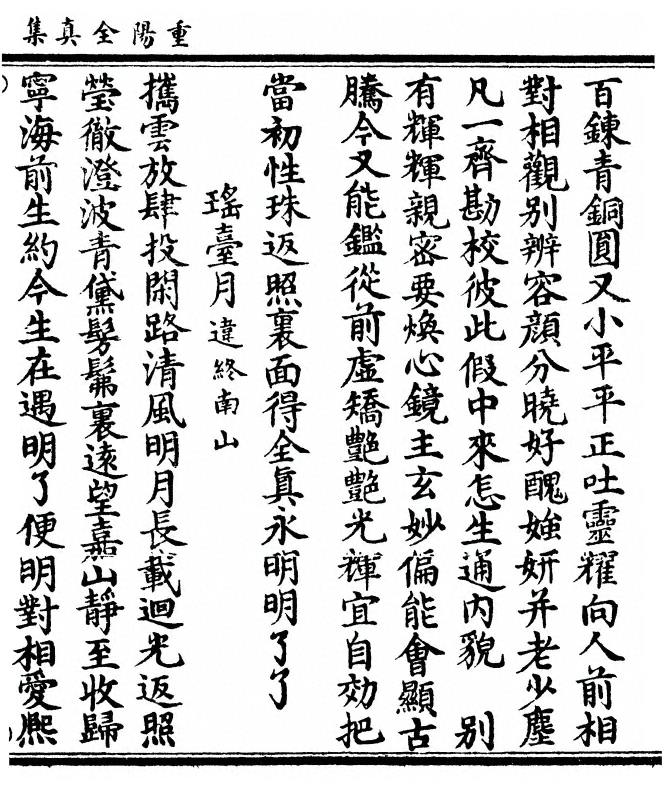 重陽全真集
百鍊青銅圓又小平平正吐靈耀向人前相
對相觀别辨容顏分曉好醜媸妍并老少塵
凡一齊勘校彼此假中來怎生通内貌　别
有輝輝親密要煥心鏡主玄妙偏能會顯古
騰今又能鑑從前虛矯艷艷光輝宜自効把
當初性珠返照裏面得全真永明明了了
瑤臺月違終南山
擕雲放肆投閑路清風明月長載迴光返照
瑩徹澄波青黛髣髴裏遠望嘉山靜至收歸
寧海前生約今生在遇明了便明對相愛熈